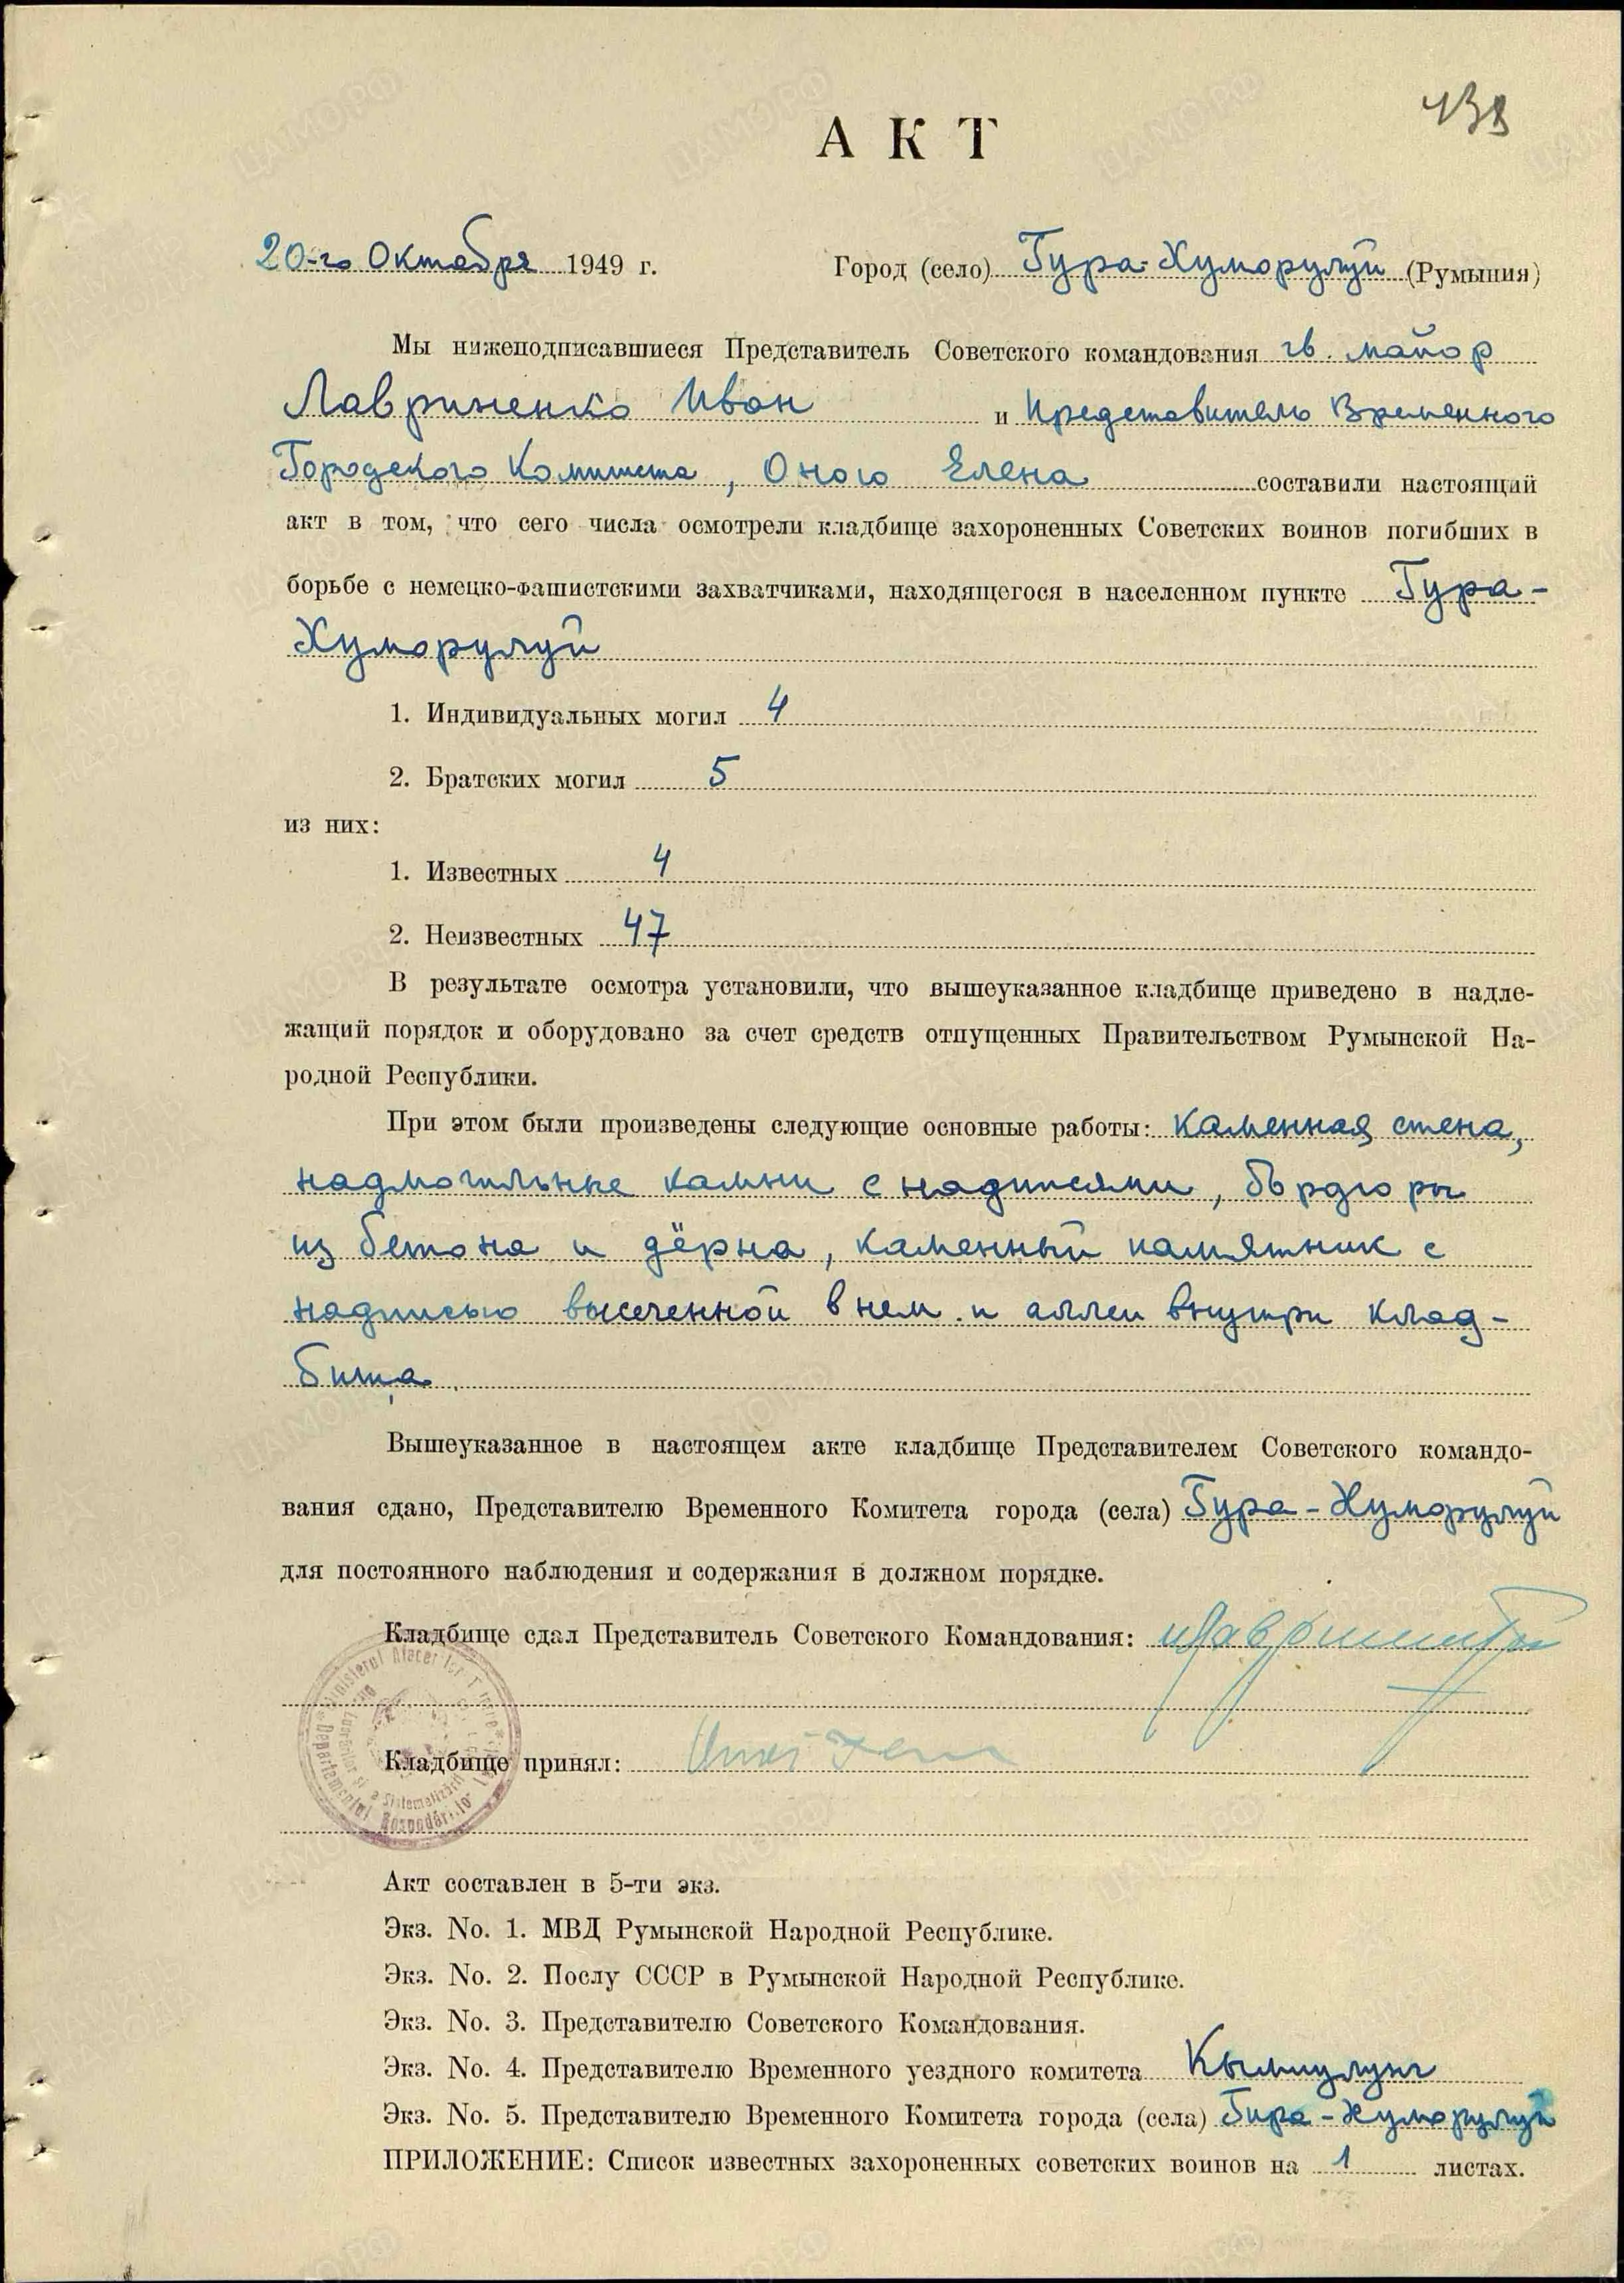 139
АКТ
20-го Октября 1949 г. Город (село) Гура-Хуморулуй (Румыния)
Мы нижеподписавшиеся Представитель Советского командования гв. майор
Лавриненко Иван и Представитель Временного
Городского Комитета, Оною Елена составили настоящий
акт в том, что сего числа осмотрели кладбище захороненных Советских воинов погибших в
борьбе с немецко-фашистскими захватчиками, находящегося в населенном пункте Гура-
Хуморулуй
1. Индивидуальных могил 4
2. Братских могил 5
из них:
1. Известных 4
2. Неизвестных 47
В результате осмотра установили, что вышеуказанное кладбище приведено в надле-
жащий порядок и оборудовано за счет средств отпущенных Правительством Румынской На-
родной Республики.
При этом были произведены следующие основные работы: каменная стена,
надмогильные камни с надписями, бърдюры
из бетона и дёрна, каменный памятник с
надписью высеченной в нем и аллеи внутри клад-
бища.
Вышеуказанное в настоящем акте кладбище Представителем Советского командо-
вания сдано, Представителю Временного Комитета города (села) Гура-Хуморулуй
для постоянного наблюдения и содержания в должном порядке.
Кладбище сдал Представитель Советского Командования:
Кладбище принял:
Акт составлен в 5-ти экз.
Экз. No. 1. МВД Румынской Народной Республике.
Экз. No. 2. Послу СССР в Румынской Народной Республике.
Экз. No. 3. Представителю Советского Командования.
Экз. No. 4. Представителю Временного уездного комитета Кымпулунг
Экз. No. 5. Представителю Временного Комитета города (села) Гура-Хуморулуй
ПРИЛОЖЕНИЕ: Список известных захороненных советских воинов на 1 листах.